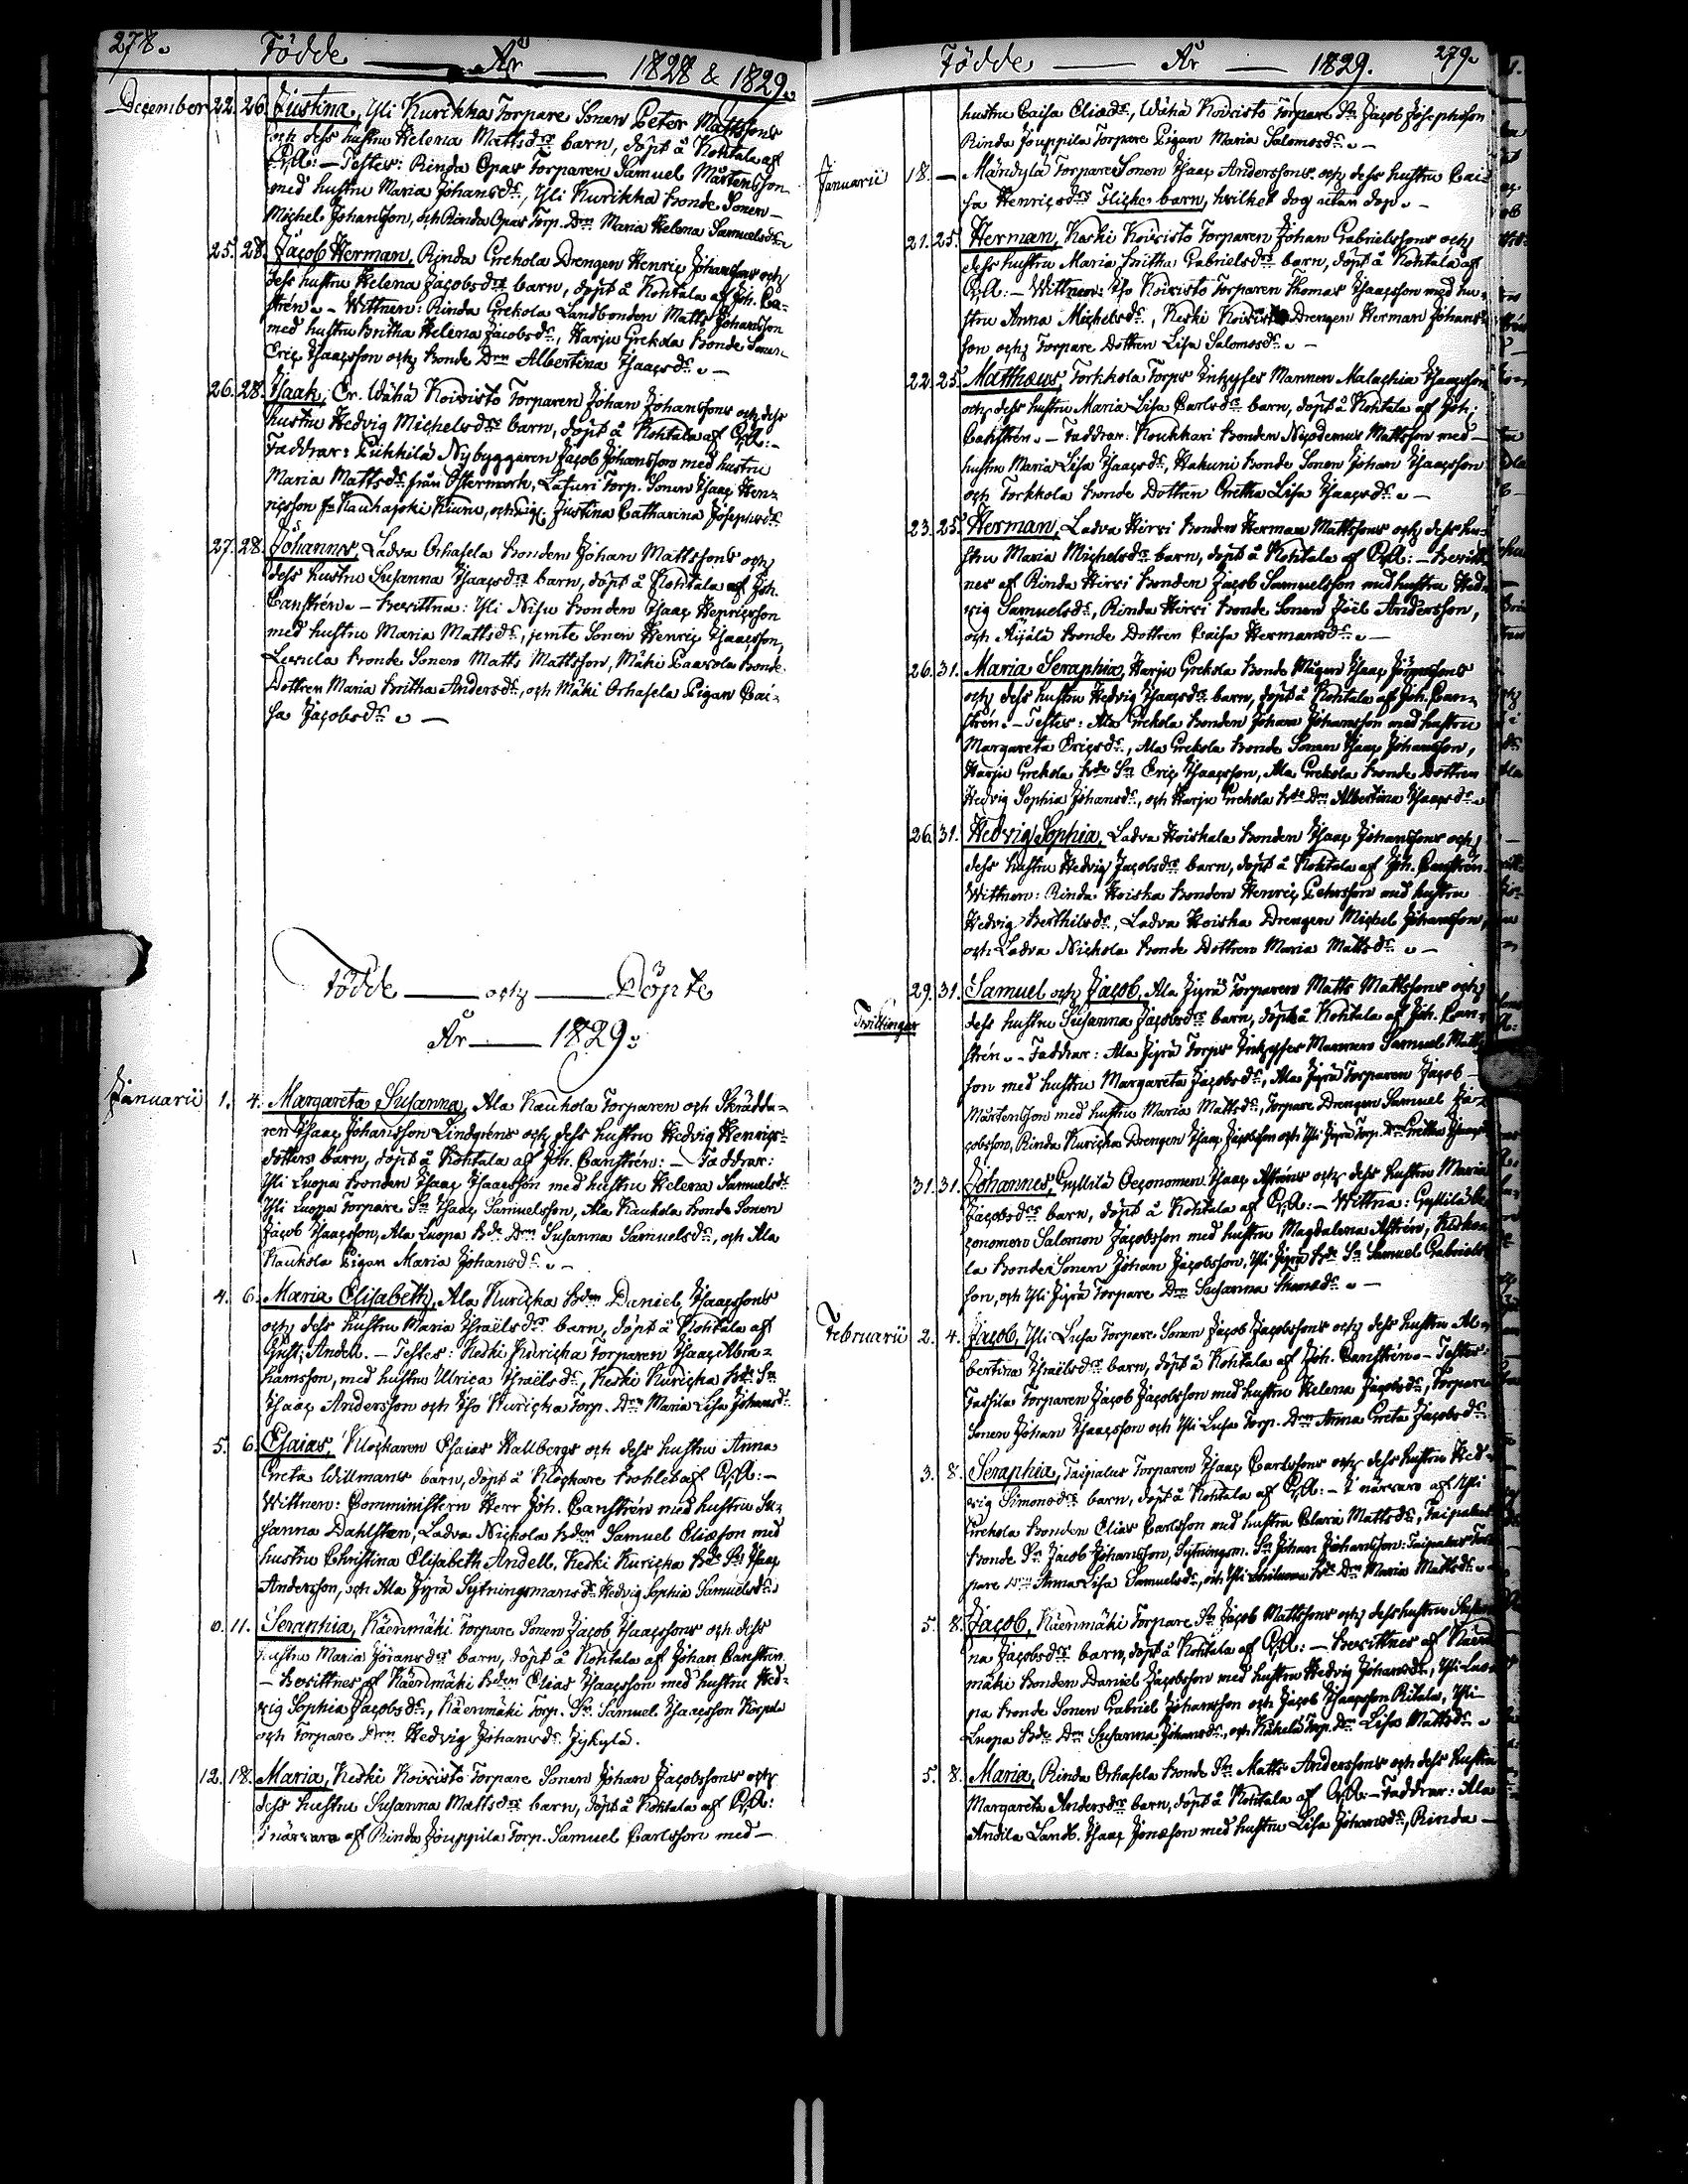 278.
Födde — År — 1828 & 1829.
December 22. 26. Justina, Yli Kurikka Torpare Sonen Peter Mattssons
och dess hustru Helena Mattsdrs barn, döpt å Kohtala af
C,A: — Testes: Rinda Opas Torparen Samuel Mårtensson
med hustru Maria Johansdr, Yli Kurikka Bonde Sonen
Michel Johansson, och Rinda Opas Torp. Drn Maria Helena Samuelsdr
25. 28. Jacob Herman, Rinda Grekola Drengen Henric Johanssons och
dess hustru Helena Jacobsdrs barn, döpt å Kohtala af Joh. Ca-
strén. - Wittnen: Rinda Grekola Landbonden Matts Johansson
med hustru Britha Helena Jacobsdr, Harju Grekola Bonde Sonen
Eric Isaacsson och Bonde Drn Albertina Isaacsdr. —
26. 28. Isaak, Er. Wähä Koivisto Torparen Johan Johanssons och dess
hustru Hedvig Michelsdrs barn, döpt å Kohtala af C,A: -
Faddrar: Pihkkilä Nybyggaren Jacob Johansson med hustru
Maria Mattsdr från Östermark, Lafuri Torp. Sonen Isaac Hen-
ricsson fr Kauhajoki Kiuru, och Pig. Justina Catharina Josephsdr
27. 28. Johannes, Ladva Orhasela Bonden Johan Mattssons och
dess hustru Susanna Isaacsdrs barn, döpt å Kohtala af Joh.
Canstrén. - Bevittna: Yli Nisu Bonden Isaac Henricsson
med hustru Maria Mattsdr, jemte Sonen Henric Isaacsson,
Levula Bonde Sonen Matts Mattsson, Mäki Paavola Bonde
Dottren Maria Britha Andersdr, och Mäki Orhasela Pigan Cai-
sa Jacobsdr. —
Födde — och — Döpte
År — 1829.
Januarii 1. 4. Margareta Susanna, Ala Kaukola Torparen och Skrädda-
ren Isaac Johansson Lindgréns och dess hustru Hedvig Henrics-
dotters barn, döpt å Kohtala af Joh. Canstrén: — Faddrar:
Yli Luopa Bonden Isaac Isaacsson med hustru Helena Samuelsdr
Yli Luopa Torpare Sn Isaac Samuelsson, Ala Kaukola Bonde Sonen
Jacob Isaacsson, Ala Luopa Bde Drn Susanna Samuelsdr, och Ala
Kaukola Pigan Maria Johansdr. -
4. 6. Maria Elisabeth, Ala Kuricka Bden Daniel Isaacssons
och dess hustru Maria Israëlsdrs barn, döpt å Kohtala af
Gust; Andell. — Testes: Keski Kuricka Torparen Isaac Abra-
hamsson, med hustru Ulrica Israëlsdr, Keski Kuricka Bde Sn
Isaac Andersson och Iso Kuricka Torp. Drn Maria Lisa Johansdr.
5. 6. Esaias, Klockaren Esaias Hallbergs och dess hustru Anna
Greta Willmans barn, döpt å Klockare Bohlet af C,A: —
Wittnen: Comministern Herr Joh. Canstrén med hustru Su-
sanna Dahlsten, Ladva Nickola Bden Samuel Eliæson med
hustru Christina Elisabeth Andell, Keski Kuricka Bde Sn Isaac
Andersson, och Ala Jyrä Sytningsmansdr Hedvig Sophia Samuelsdr.
6. 11. Seraphia, Käenmäki Torpare Sonen Jacob Isaacssons och dess
hustru Maria Göransdrs barn, döpt å Kohtala af Johan Canstrén.
— Bevittnes af Käenmäki Bden Elias Isaacsson med hustru Hed-
vig Sophia Jacobsdr, Käenmäki Torp. Sn Samuel Isaacsson Korpela
och Torpare Drn Hedvig Johansdr Jykylä.
12. 18. Maria, Keski Koivisto Torpare Sonen Johan Jacobssons och
dess hustru Susanna Mattsdrs barn, döpt å Kohtala af C,A:
i närvaro af Rinda Jouppila Torp. Samuel Carlsson med —
Födde — År — 1829. 279.
hustru Caisa Eliædr, Wähä Koivisto Torpare Sn Jacob Josephsson
Rinda Jouppila Torpare Pigan Maria Salomosdr. —
Januarii 18. — Mändylä Torpare Sonen Isaac Anderssons och dess hustru Cai-
sa Henricsdrs Flicke barn, hvilket dog utan dop. -
21. 25. Herman, Keski Koivisto Torparen Johan Gabrielssons och
dess hustru Maria Britha Gabrielsdrs barn, döpt å Kohtala af
C,A: — Wittnen: Iso Koivisto Torparen Thomas Isaacsson med hu-
stru Anna Michelsdr, Keski Koivisto Drengen Herman Johans-
son och Torpare Dottren Lisa Salomosdr. —
22. 25. Matthæus, Torkkola Torps Inhyses Mannen Malachia Isaacssons
och dess hustru Maria Lisa Carlsdrs barn, döpt å Kohtala af Joh:
Canstrén. - Faddrar: Koukkari Bonden Nicodemus Mattsson med —
hustru Maria Lisa Isaacsdr, Hakuni Bonde Sonen Johan Isaacsson
och Torkkola Bonde Dottren Gretha Lisa Isaacsdr. —
23. 25. Herman, Ladva Hirvi Bonden Herman Mattssons och dess hu-
stru Maria Michelsdrs barn, döpt å Kohtala af C,A: — Bevitt-
nes af Rinda Hirvi Bonden Jacob Samuelsson med hustru Hed-
vig Samuelsdr, Rinda Hirvi Bonde Sonen Joël Andersson,
och Äijälä Bonde Dottren Caisa Hermansdr. —
26. 31. Maria Seraphia, Harju Grekola Bonde Mågen Isaac Jöranssons
och dess hustru Hedvig Isaacsdrs barn, döpt å Kohtala af Joh. Can-
strén. - Testes: Ala Grekola Bonden Johan Johansson med hustru
Margareta Ericsdr, Ala Grekola Bonde Sonen Isaac Johansson,
Harju Grekola Bde Sn Eric Isaacsson, Ala Grekola Bonde Dottren
Hedvig Sophia Johansdr, och Harju Grekola Bde Drn Albertina Isaacsdr.
26. 31. Hedvig Sophia, Ladva Koiskala Bonden Isaac Johanssons och
dess hustru Hedvig Jacobsdrs barn, döpt å Kohtala af Joh. Canstrén.
Wittnen: Rinda Koiska Bonden Henric Pehrsson med hustru
Hedvig Berthilsdr, Ladva Koiska Drengen Michel Johansson,
och Ladva Nickola Bonde Dottren Maria Mattsdr. —
Tvillingar 29. 31. Samuel och Jacob, Ala Jyrä Torparen Matts Mattssons och
dess hustru Susanna Jacobsdrs barn, döpt å Kohtala af Joh. Can-
strén. - Faddrar: Ala Jyrä Torps Inhyses Mannen Samuel Matts-
son med hustru Margareta Jacobsdr, Ala Jyrä Torparen Jacob —
Mårtensson med hustru Maria Mattsdr, Torpare Drengen Samuel Ja-
cobsson, Rinda Kuricka Drengen Isaac Jacobsson och Yli Jyrä Torp. Drn Gretha Isaacsdr
31. 31. Johannes, Gyllilä Oeconomen Isaac Astréns och dess hustru Maria
Jacobsdrs barn, döpt å Kohtala af C,A: — Wittna: Gyllilä Oe-
conomen Salomon Jacobsson med hustru Magdalena Astrén,
la Bonde Sonen Johan Jacobsson, Yli Jyrä Bde Sn Samuel Gabriels-
son, och Yli Jyrä Torpare Drn Susanna Thomædr. —
Februarii 2. 4. Jacob, Yli Lusa Torpare Sonen Jacob Jacobssons och dess hustru Al-
bertina Israëlsdrs barn, döpt å Kohtala af Joh. Canstrén. - Testes:
Tasfila Torparen Jacob Jacobsson med hustru Helena Jacobsdr, Torpare
Sonen Johan Isaacsson och Yli Lusa Torp. Drn Anna Greta Jacobsdr
3. 8. Seraphia, Taipalus Torparen Isaac Carlssons och dess hustru Hed-
vig Simonsdrs barn, döpt å Kohtala af C,A: — I närvaro af Yli
Grekola Bonden Elias Carlsson med hustru Clara Mattsdr, Taipalus
Bonde Sn Jacob Johansson, Sytningsm. Sn Johan Johansson: Taipalus Tor-
pare Drn Anna Lisa Samuelsdr, och Yli Bde Drn Maria Mattsdr.
5. 8. Jacob, Käenmäki Torpare Sn Jacob Mattssons och dess hustru Susan-
na Jacobsdrs barn, döpt å Kohtala af C,A: — Bevittnes af Käen-
mäki Bonden Daniel Jacobsson med hustru Hedvig Johansdr, Yli Luo-
pa Bonde Sonen Gabriel Johansson och Jacob Isaacsson Ritala, Yli
Luopa Bde Drn Susanna Johansdr, och Torp. Drn Lisa Mattsdr.
5. 8. Maria, Rinda Orhasela Bonde Sn Matts Anderssons och dess hustru
Margareta Andersdrs barn, döpt å Kohtala af C,A: — Faddrar: Ala
Andila Landb. Isaac Jonæson med hustru Lisa Johansdr, Rinda —